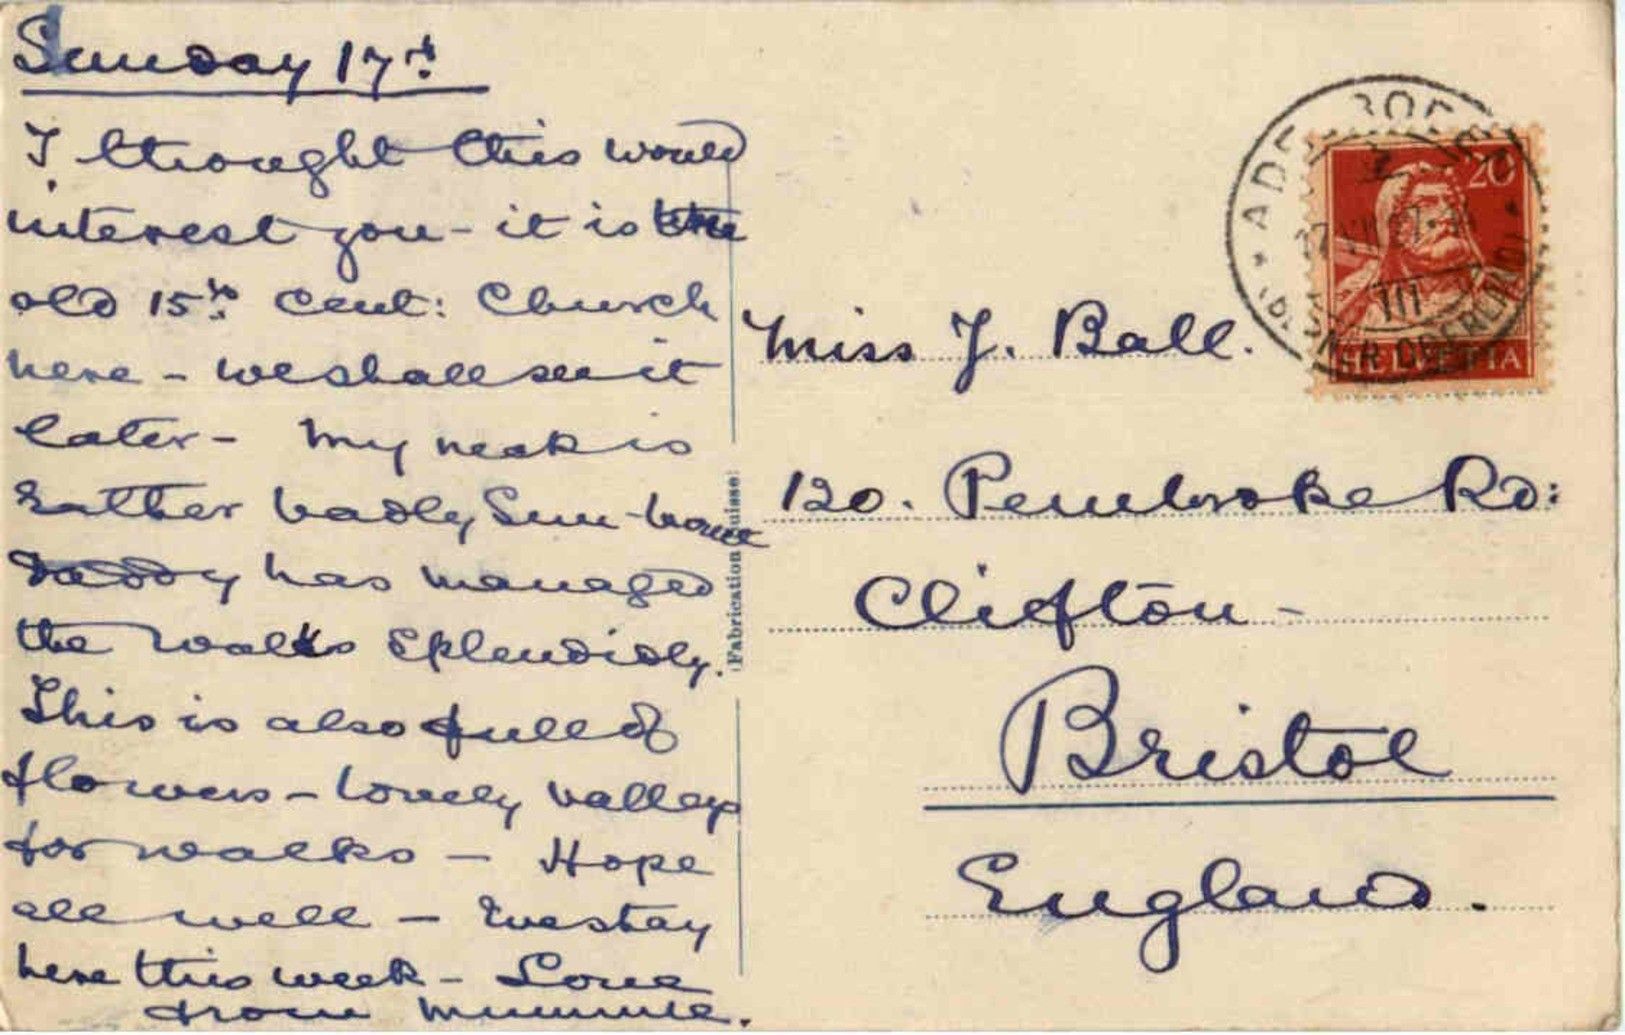 Sunday 17th
I thought this would
interest you - it is the
old 15th cent: Church
here - we shall see it
later - My neck is
rather badly Sun-burnt
Daddy has managed
the walks splendidly.
This is also full of
flowers - lovely valleys
for walks - Hope
all well - We stay
here this week - Love
from Mummie.
(Fabrication suisse)
Miss J. Ball.
120. Pembroke Rd:
Clifton -
Bristol
England.
20
III
(BERNER OBERLAND)
HELVETIA